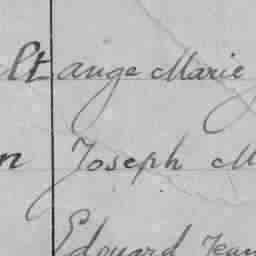 lt ange Marie
n Joseph M
Edouard Jean